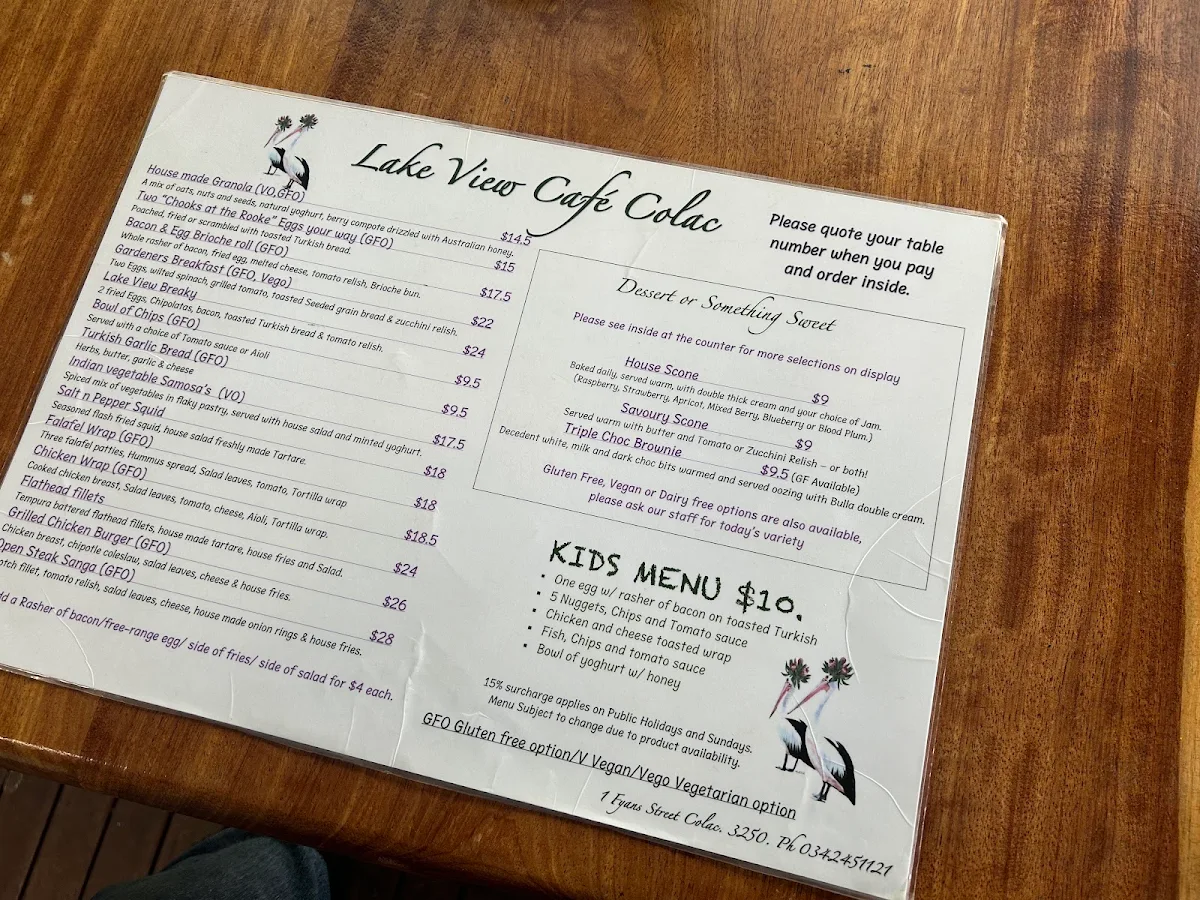 Lake View Café Colac
House made Granola (VO,GFO) $14.5
A mix of oats, nuts and seeds, natural yoghurt, berry compote drizzled with Australian honey.
Two "Chooks at the Rooke" Eggs your way (GFO) $15
Poached, fried or scrambled with toasted Turkish bread.
Bacon & Egg Brioche roll (GFO) $17.5
Whole rasher of bacon, fried egg, melted cheese, tomato relish, Brioche bun.
Gardeners Breakfast (GFO, Vego) $22
Two Eggs, wilted spinach, grilled tomato, toasted Seeded grain bread & zucchini relish.
Lake View Breaky $24
2 fried Eggs, Chipolatas, bacon, toasted Turkish bread & tomato relish.
Bowl of Chips (GFO) $9.5
Served with a choice of Tomato sauce or Aioli
Turkish Garlic Bread (GFO) $9.5
Herbs, butter, garlic & cheese
Indian vegetable Samosa's (VO) $17.5
Spiced mix of vegetables in flaky pastry, served with house salad and minted yoghurt.
Salt n Pepper Squid $18
Seasoned flash fried squid, house salad freshly made Tartare.
Falafel Wrap (GFO) $18
Three falafel patties, Hummus spread, Salad leaves, tomato, Tortilla wrap
Chicken Wrap (GFO) $18.5
Cooked chicken breast, Salad leaves, tomato, cheese, Aioli, Tortilla wrap.
Flathead fillets $24
Tempura battered flathead fillets, house made tartare, house fries and Salad.
Grilled Chicken Burger (GFO) $26
Chicken breast, chipotle coleslaw, salad leaves, cheese & house fries.
Open Steak Sanga (GFO) $28
fillet, tomato relish, salad leaves, cheese, house made onion rings & house fries.
a Rasher of bacon/free-range egg/ side of fries/ side of salad for $4 each.
Please quote your table
number when you pay
and order inside.
Dessert or Something Sweet
Please see inside at the counter for more selections on display
House Scone $9
Baked daily, served warm, with double thick cream and your choice of Jam.
(Raspberry, Strawberry, Apricot, Mixed Berry, Blueberry or Blood Plum.)
Savoury Scone $9
Served warm with butter and Tomato or Zucchini Relish – or both!
Triple Choc Brownie $9.5 (GF Available)
Decedent white, milk and dark choc bits warmed and served oozing with Bulla double cream.
Gluten Free, Vegan or Dairy free options are also available,
please ask our staff for today's variety
KIDS MENU $10.
▪ One egg w/ rasher of bacon on toasted Turkish
▪ 5 Nuggets, Chips and Tomato sauce
▪ Chicken and cheese toasted wrap
▪ Fish, Chips and tomato sauce
▪ Bowl of yoghurt w/ honey
15% surcharge applies on Public Holidays and Sundays.
Menu Subject to change due to product availability.
GFO Gluten free option/V Vegan/Vego Vegetarian option
1 Fyans Street Colac. 3250. Ph 0342451121